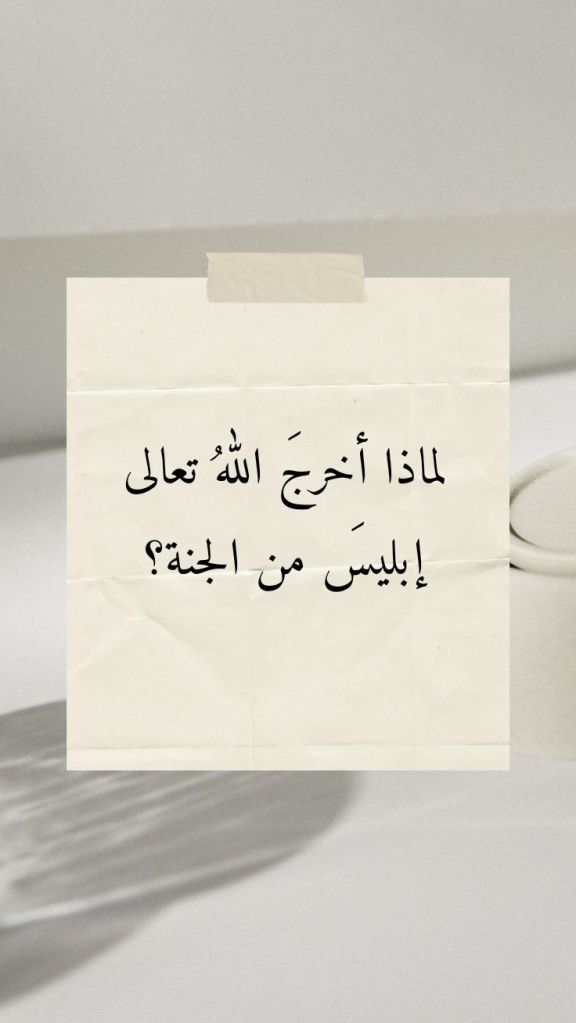 لماذا أخرجَ اللهُ تعالى
إبليسَ من الجنة؟